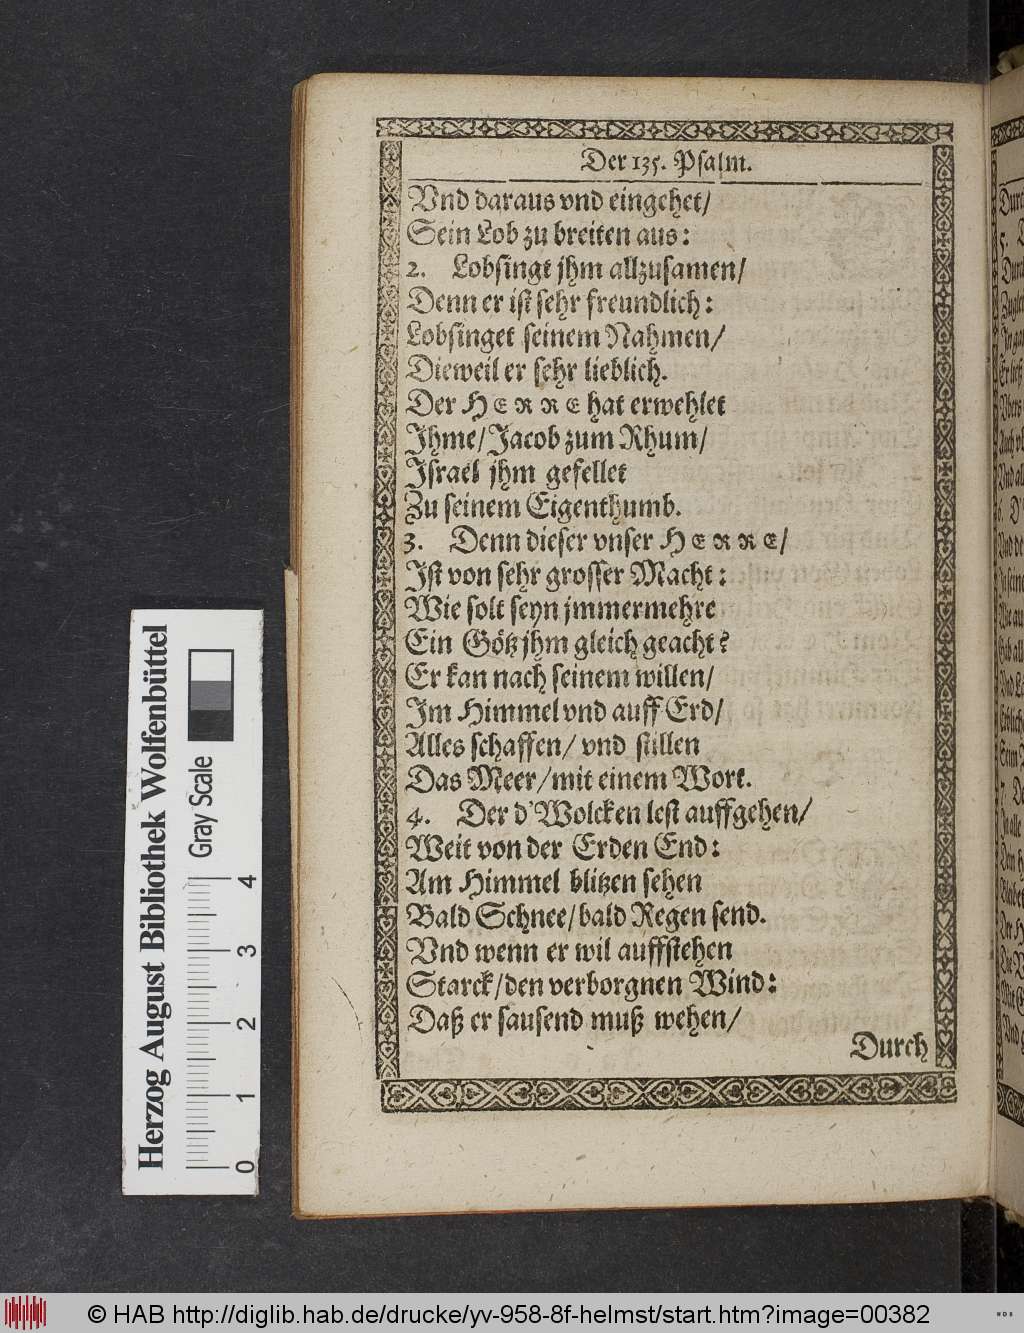 Der 135. Psalm.
Vnd daraus vnd eingehet/
Sein Lob zu breiten aus:
2. Lobsingt jhm allzusamen/
Denn er ist sehr freundlich:
Lobsinget seinem Nahmen/
Dieweil er sehr lieblich.
Der HERRE hat erwehlet
Ihme/Jacob zum Rhum/
Israel jhm gefellet
Zu seinem Eigenthumb.
3. Denn dieser vnser HERRE/
Ist von sehr grosser Macht:
Wie solt seyn jmmermehre
Ein Götz jhm gleich geacht?
Er kan nach seinem willen/
Im Himmel vnd auff Erd/
Alles schaffen/ vnd stillen
Das Meer/mit einem Wort.
4. Der d'Wolcken lest auffgehen/
Weit von der Erden End:
Am Himmel blitzen sehen
Bald Schnee/bald Regen send.
Vnd wenn er wil auffstehen
Starck/den verborgnen Wind:
Daß er sausend muß wehen/
Durch
Herzog August Bibliothek Wolfenbüttel
Gray Scale
0 1 2 3 4
© HAB http://diglib.hab.de/drucke/yv-958-8f-helmst/start.htm?image=00382